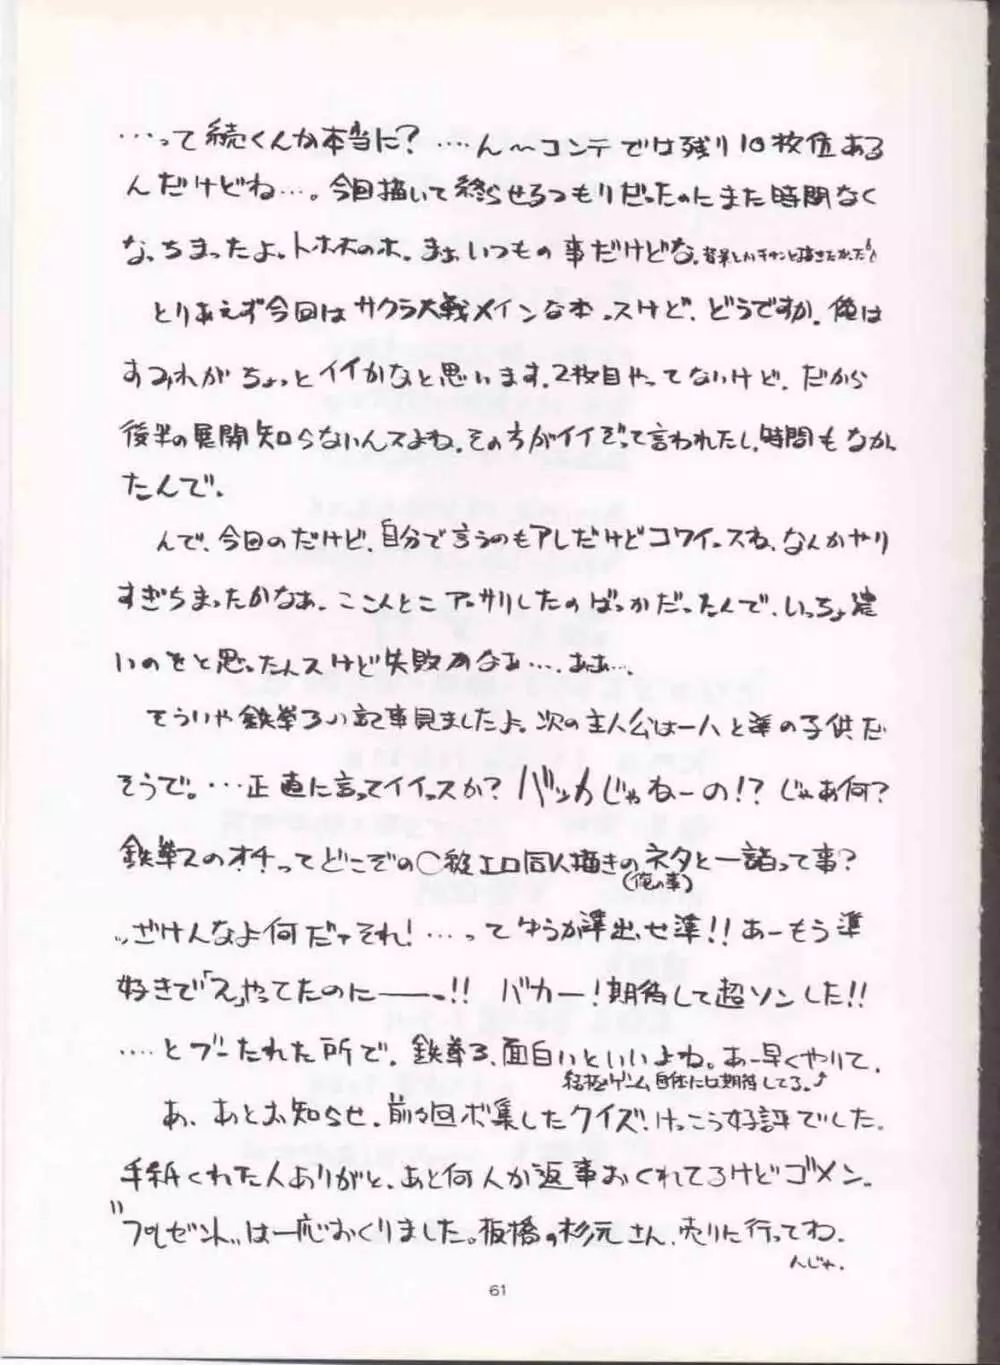 …って続くんか本当に?…ん〜コンテでは残り10枚位ある
んだけどね…。今回描いて終らせるつもりだったのにまた時間なく
なっちまったよ。トホホのホ。まぁ、いつもの事だけどな。背景とかキチンと描きたかった!
とりあえず今回はサクラ大戦メインな本っスけど、どうですか。俺は
すみれがちょっとイイかなと思います。2枚目やってないけど、だから
後半の展開知らないんスよね。その方がイイぞって言われたし、時間もなかっ
たんで。
んで、今回のだけど、自分で言うのもアレだけどコワイっスね、なんかやり
すぎちまったかなぁ。ここんとこアッサリしたのばっかだったんで、いっちょ濃
いのをと思ったんスけど失敗かなぁ…。ああ…
そういや鉄拳3の記事見ましたよ。次の主人公は一八と準の子供だ
そうで。…正直に言ってイイっスか?バッカじゃねーの!?じゃあ何?
鉄拳2のオチってどこぞの〇穂エロ同人描きのネタと一諸って事?
(俺の事)
ざけんなよ何だァそれ!…ってゆうか準出せ準!!あーもう準
好きで「2」やってたのにーーっ!!バカー!期待して超ソンした!!
…とブーたれた所で。鉄拳3、面白いといいよね。あー早くやりて。
結極ゲーム自体には期待してる。
あ、あとお知らせ。前々回ボ集したクイズ、けっこう好評でした。
手紙くれた人ありがと、あと何人か返事おくれてるけどゴメン。
"プレゼント"は一応おくりました。板橋の杉元さん、売りに行ってね。
んじゃ。
61